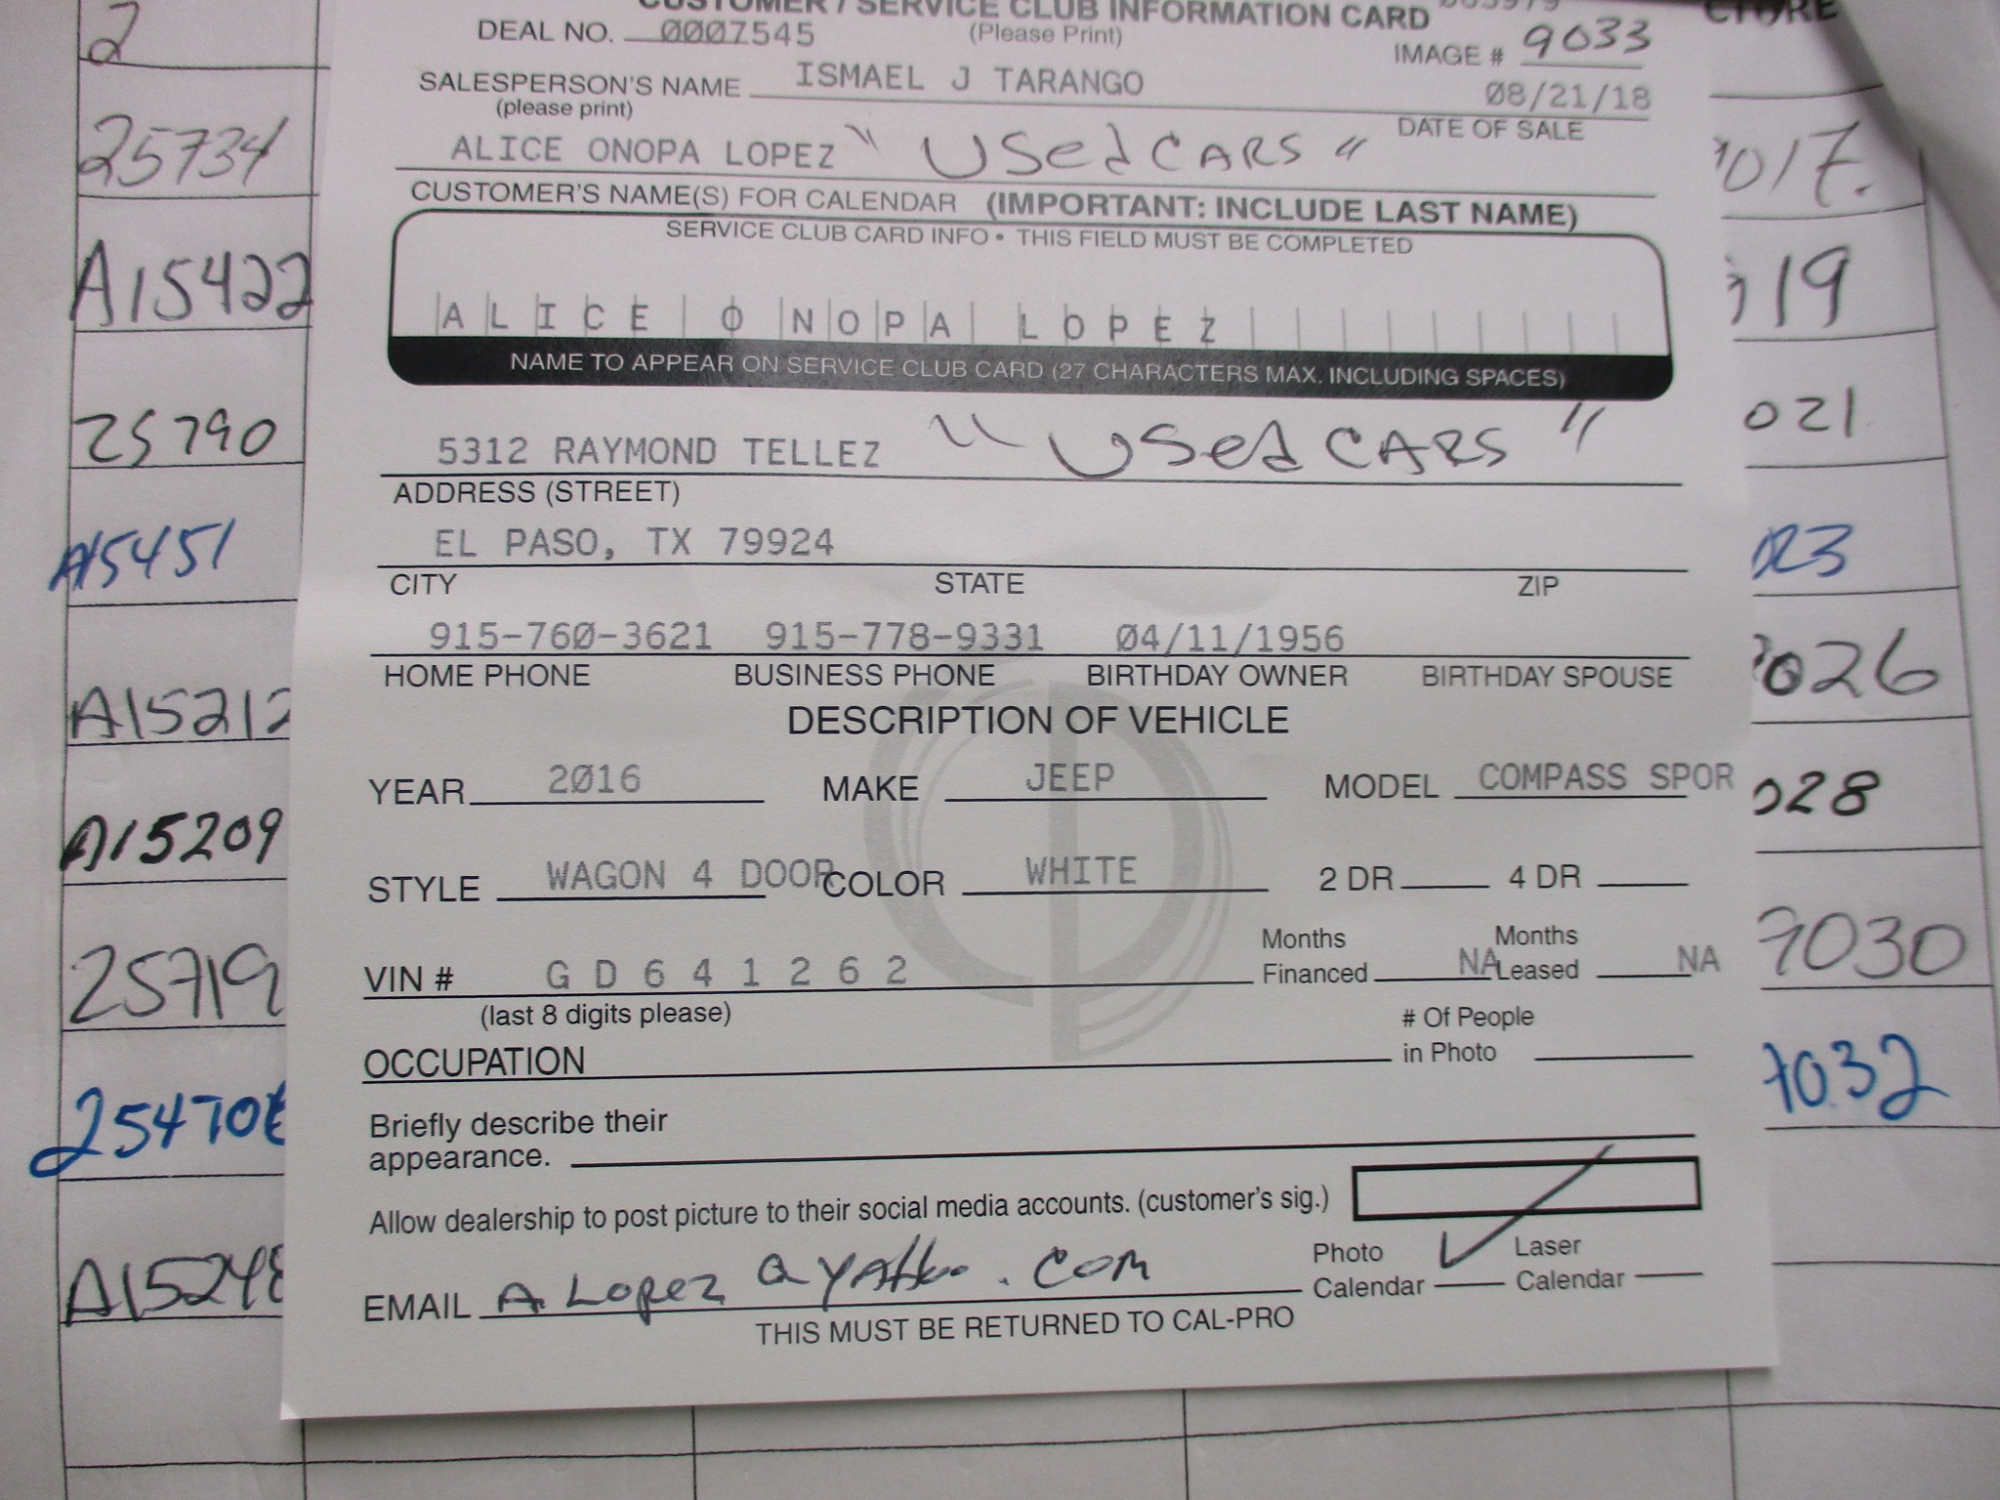 CUSTOMER / SERVICE CLUB INFORMATION CARD
DEAL NO. 0007545 (Please Print) IMAGE # 9033
SALESPERSON'S NAME ISMAEL J TARANGO 08/21/18
(please print) DATE OF SALE
ALICE ONOPA LOPEZ " USed CARS "
CUSTOMER'S NAME(S) FOR CALENDAR (IMPORTANT: INCLUDE LAST NAME)
SERVICE CLUB CARD INFO • THIS FIELD MUST BE COMPLETED
ALICE ONOPA LOPEZ
NAME TO APPEAR ON SERVICE CLUB CARD (27 CHARACTERS MAX. INCLUDING SPACES)
5312 RAYMOND TELLEZ " USed CARS "
ADDRESS (STREET)
EL PASO, TX 79924
CITY STATE ZIP
915-760-3621 915-778-9331 04/11/1956
HOME PHONE BUSINESS PHONE BIRTHDAY OWNER BIRTHDAY SPOUSE
DESCRIPTION OF VEHICLE
YEAR 2016 MAKE JEEP MODEL COMPASS SPOR
STYLE WAGON 4 DOOR COLOR WHITE 2 DR 4 DR
VIN # G D 6 4 1 2 6 2 Months Financed NA Months Leased NA
(last 8 digits please)
OCCUPATION # Of People in Photo
Briefly describe their
appearance.
Allow dealership to post picture to their social media accounts. (customer's sig.)
EMAIL A. Lopez @ yahoo . com Photo Calendar Laser Calendar
THIS MUST BE RETURNED TO CAL-PRO
2
25734
A15422
25790
A15451
A15212
A15209
25719
A15248
017.
19
021
023
026
028
7030
7032